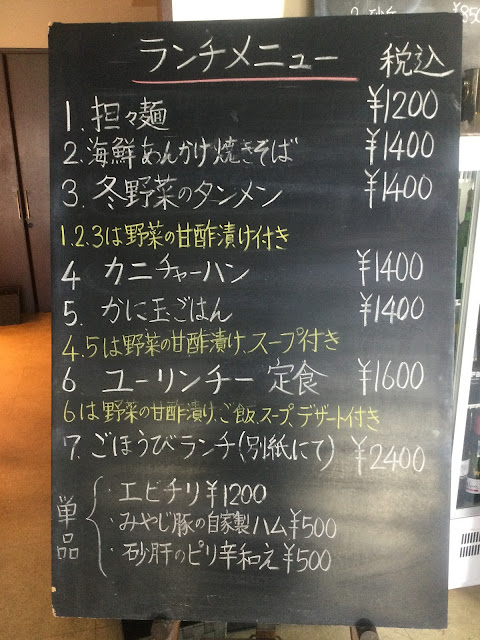 ランチメニュー 税込
1. 担々麺 ¥1200
2. 海鮮あんかけ焼きそば ¥1400
3. 冬野菜のタンメン ¥1400
1.2.3は野菜の甘酢漬け付き
4 カニチャーハン ¥1400
5. かに玉ごはん ¥1400
4.5は野菜の甘酢漬け、スープ付き
6 ユーリンチー 定食 ¥1600
6は野菜の甘酢漬け、ご飯、スープ、デザート付き
7. ごほうびランチ(別紙にて) ¥2400
単品
・エビチリ ¥1200
・みやじ豚の自家製ハム ¥500
・砂肝のピリ辛和え ¥500